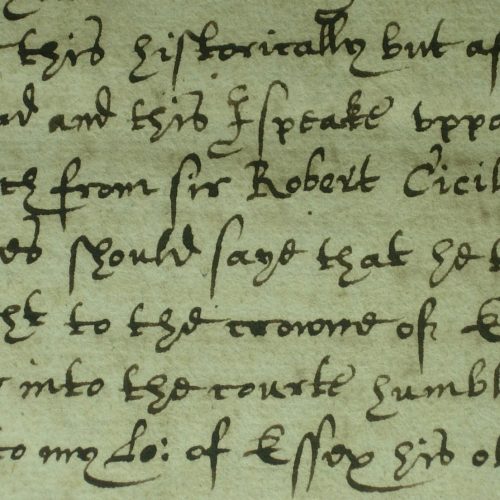 this historically but as
and this I speake vppo
from sir Robert Cicil
should saye that he
to the crowne of E
into the courte humbl
to my Lo: of Essex his ol